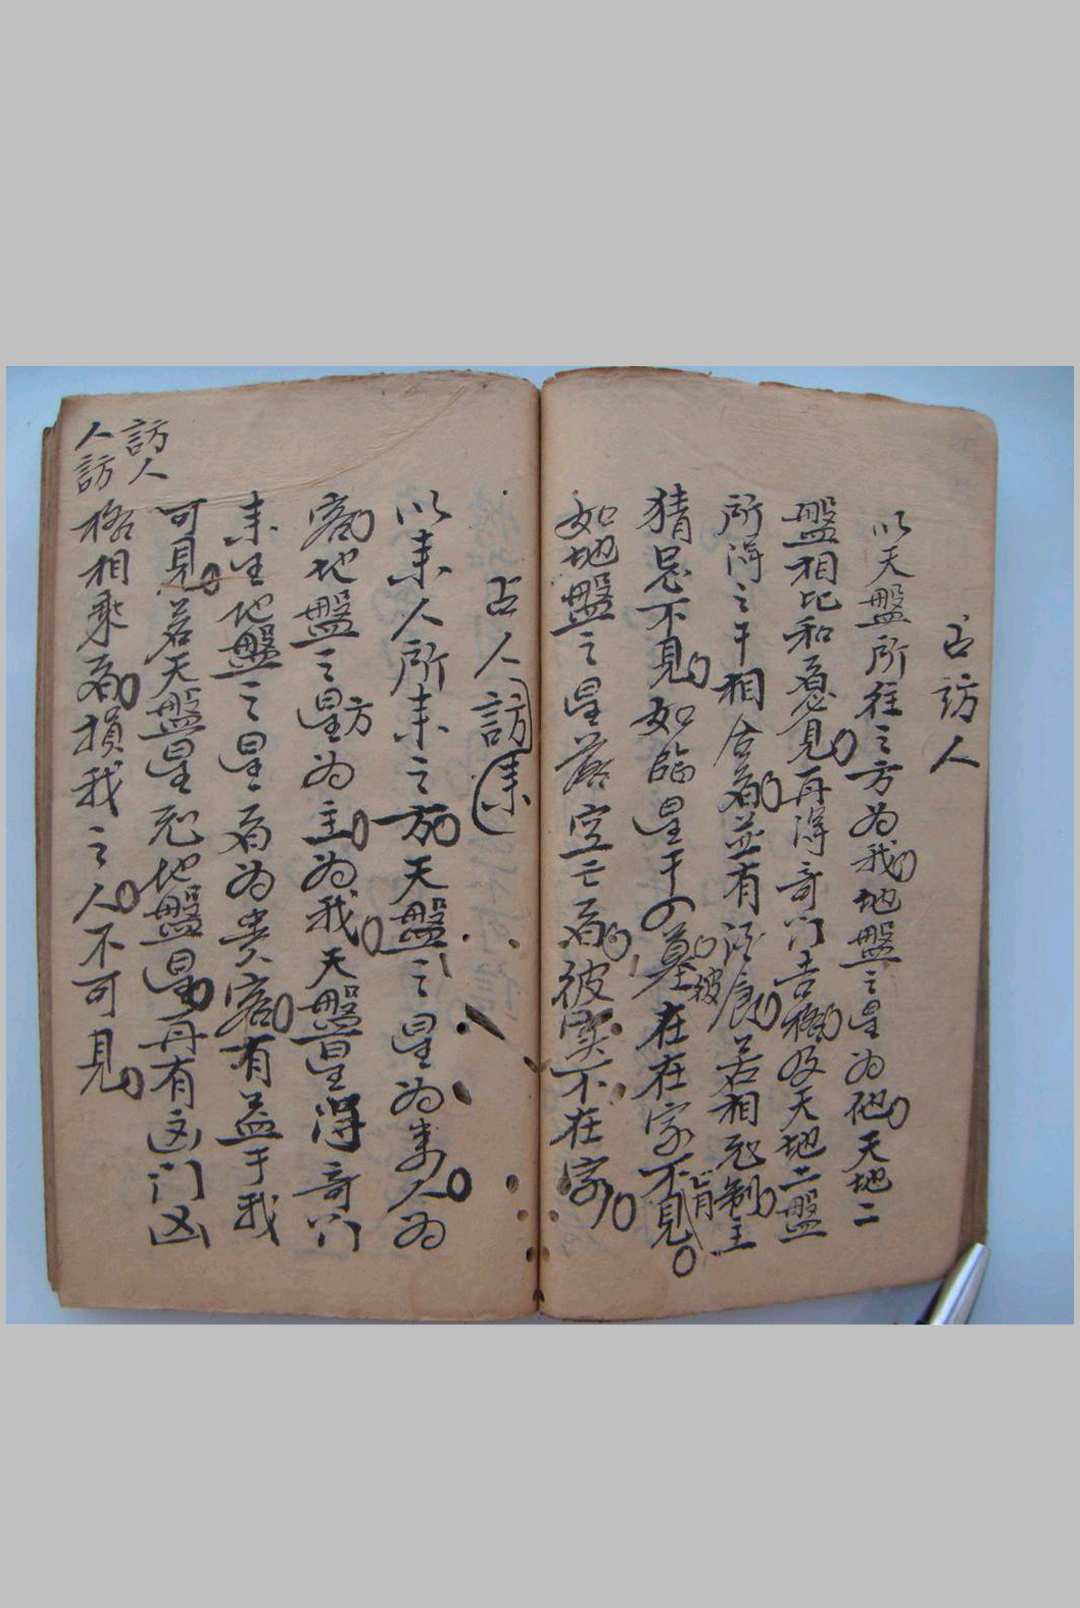 占訪人
以天盤所往之方為我地盤之星為他天地二
盤相比和者必見再得奇门吉格及天地二盤
所得之干相合者並有酒食若相尅制主
猜忌不見如臨星干の墓彼在在家不肯見
如地盤之星落空亡者彼實不在家
占人訪来
以来人所来之方天盤之星為来人為
客地盤之星方為主為我天盤星得奇门
来生地盤之星者為貴客有益于我
可見若天盤星尅地盤星再有凶门凶
格相乘者損我之人不可見
訪人
人訪